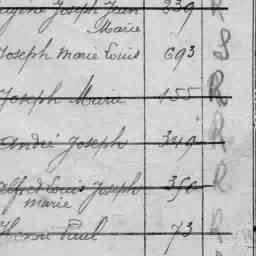 Joseph Jean 239 R
Marie
Joseph Marie Louis 693
Joseph Marie 155 R
André Joseph 349 R
Alfred Louis Joseph 350 R
Marie
Henri Paul 73 R